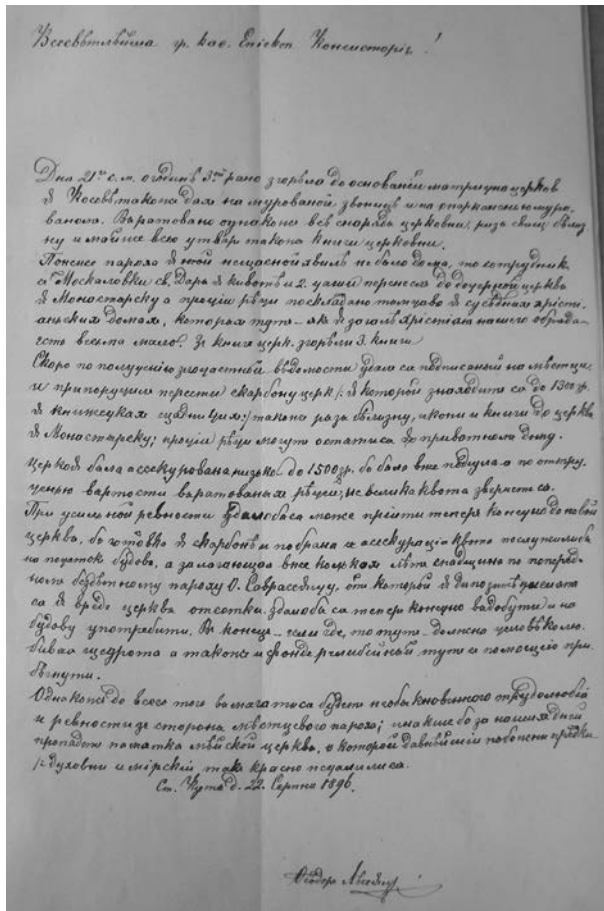 Всесвѣтлѣйша гр. кат. Епископ. Консисторіє!
Дня 21го с. м. о годинѣ 3тій рано згорѣла до основаній матрична церковь
в Косовѣ такожь дах на мурованой звоници и на опарканенью муро-
ваном. Выратовано однакожь всѣ снаряды церковни, ризы свящ. бѣлиз
ну и майже всю утварь такожь книги церковни.
Понеже пароха в той нещасной хвили не было дома, то сотрудник
с Москалѡвки св. Дары в кивотѣ и 2. чаши перенесъ до дочерной церкви
в Монастырску а прочіи рѣчи поскладано тымчасово в сусѣдных хрісті-
аньских домах, которых тутъ – як в загалѣ хрістіян нашого обряда –
есть весьма мало. Зъ книгъ церк. згорѣли 3. книги
Скоро по полудню
и припоручил перенести скарбону церк /: в которой знаходитъ ся до 1300 зр.
в книжочках щадничих :/ такожь ризы бѣлизну, иконы и книги до церкви
в Монастырску; прочіи рѣчи могутъ остатися в приватном дому.
Церковь была ассекурована низько до 1500 зр. бо была вже похила а по отру-
ченью вартости выратованых рѣчей, не велика квота звернеся.
При усильной ревности здалобыся може прійти теперь конечно до новой
церкви, бо готовка в скарбонѣ и побрана ассекурація
на початок будовы, а залягающа вже колька лѣтъ спадщина по поперед-
ном бездѣтному пароху О.
ся в вредъ церкви отсотки. здалобы ся теперь конечно выдобути и на
будову употребити. В конци – если где, то тутъ – должна
щедрота а такожь и фондъ религійный тутъ с помощію при-
бѣгнути.
Однакожь до всего того вымагатися будетъ необыкновенного трудолюбія
и ревности зе стороны мѣстцевого пароха; инакше бо за наших дній
пропаде памятка мѣйской церкви, о которой давнѣйшіи побожни предки
/: духовни и мірскіи так красно
Ст. Куты д. 22. Серпня 1896.
Ѳеодоръ